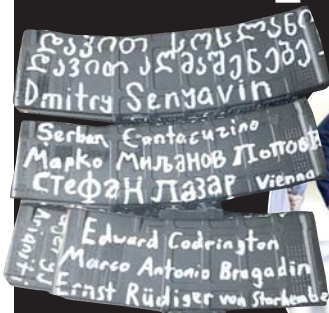 დავით სოსლანი
დავით აღმაშენებე
Dmitry Senyavin
Serban Cantacuzino
Марко Миљанов Попови
СТЕФАН ЛАЗАР Vienna
Edward Codrington
Marco Antonio Bragadin
Ernst Rüdiger von Starhembe